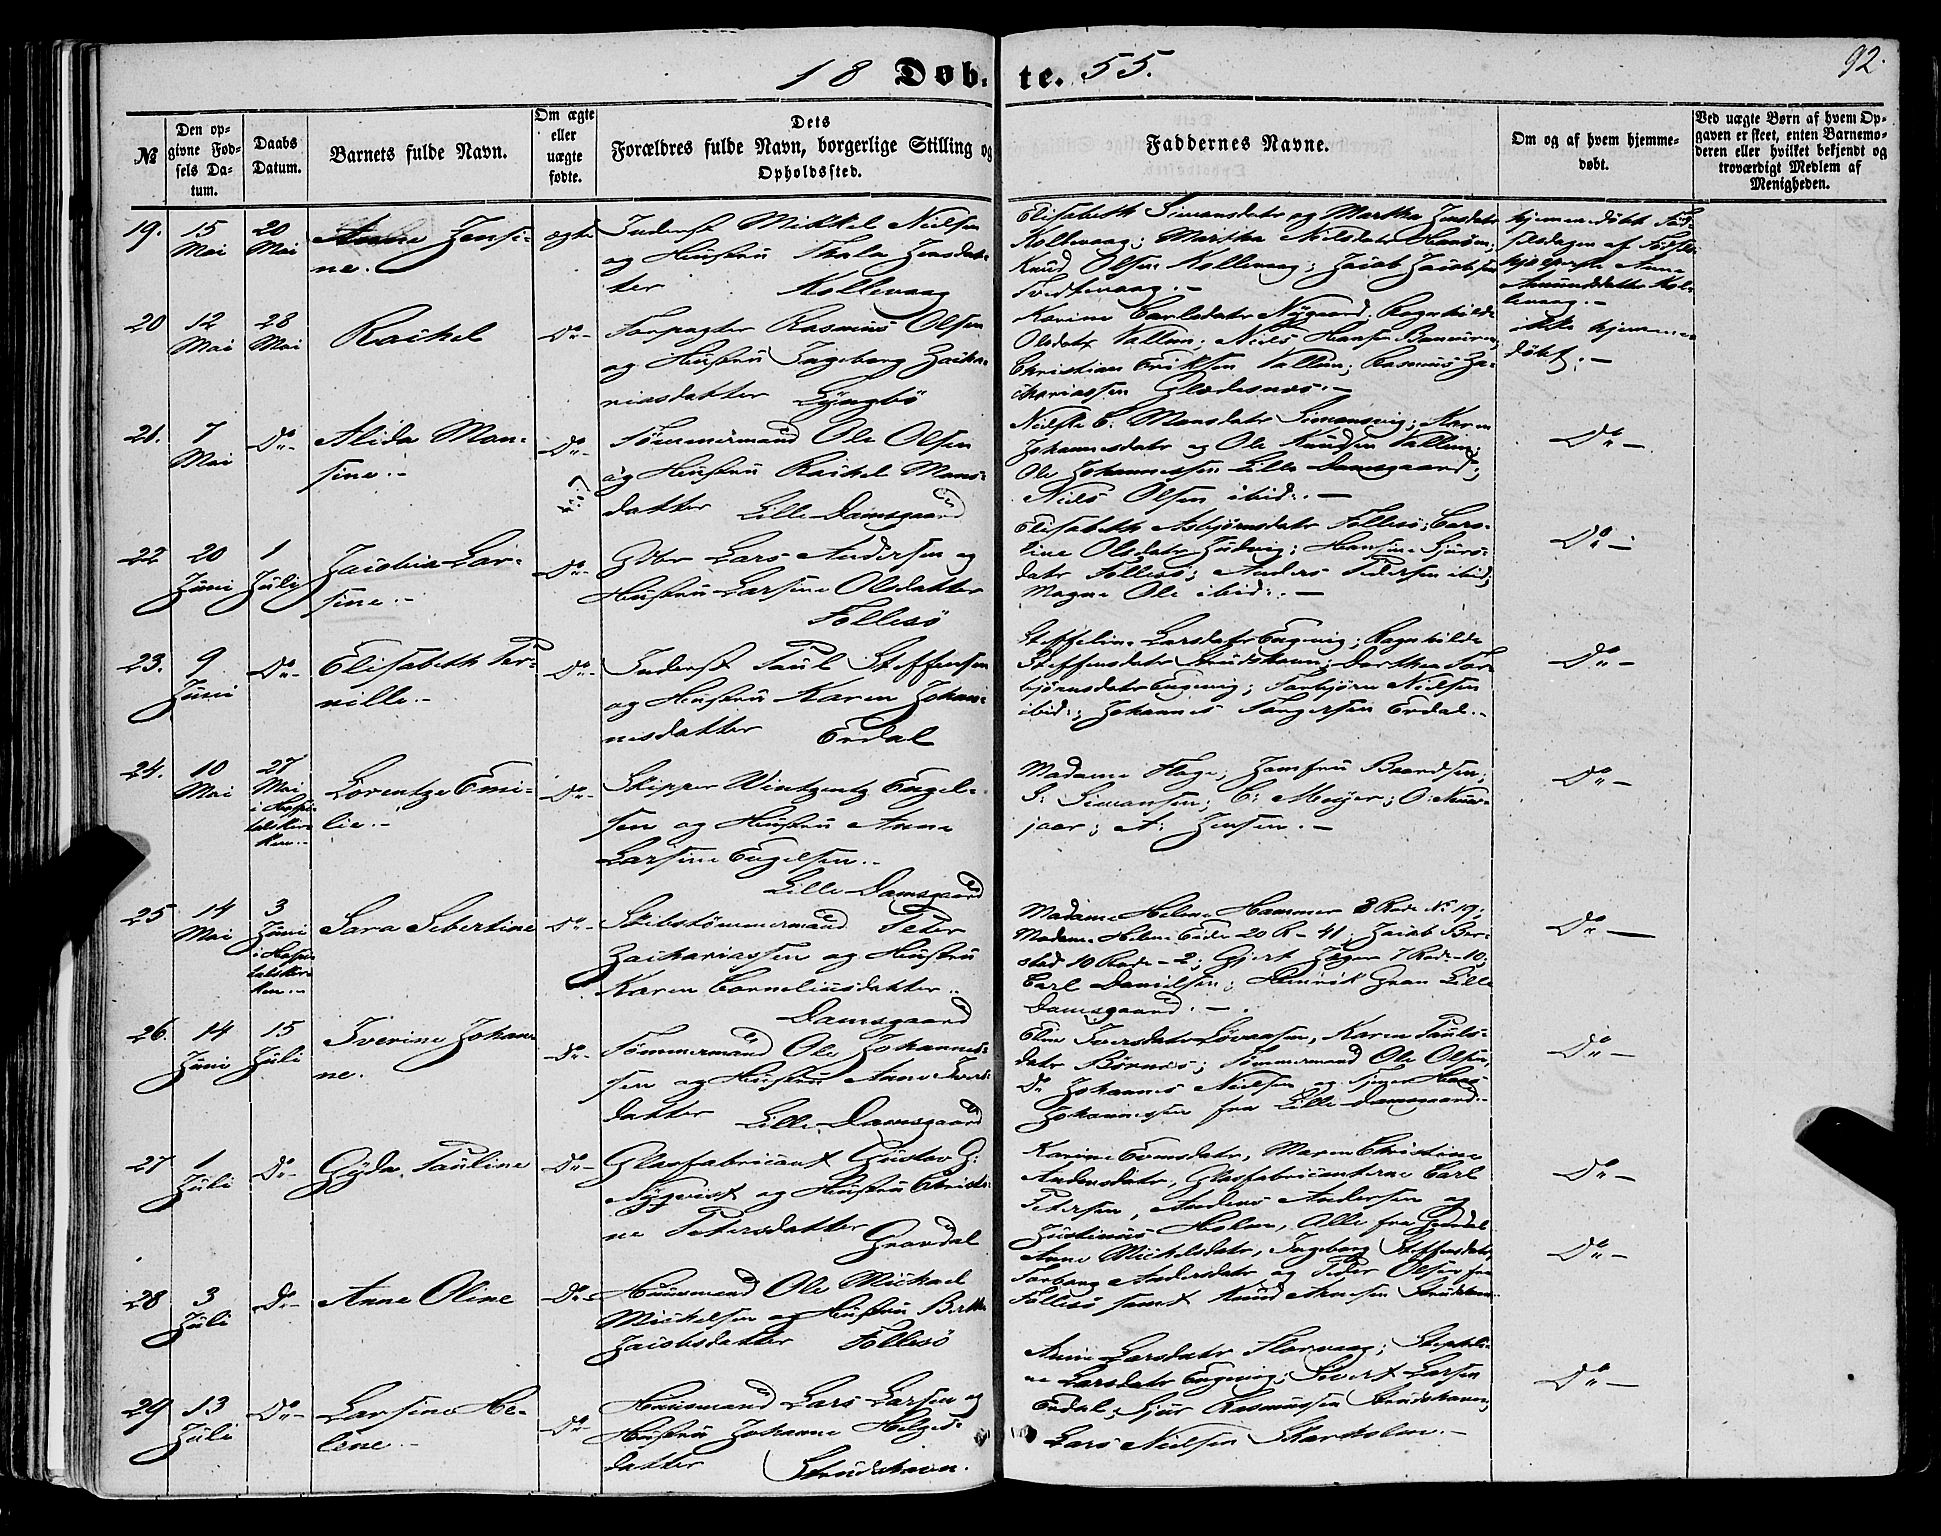 18 Døb- te. 55. 92.
№
Den opgivne Fødsels Datum.
Daabs Datum.
Barnets fulde Navn.
Om ægte eller uægte fødte.
Dets
Forældres fulde Navn, borgerlige Stilling og
Opholdssted.
Faddernes Navne.
Om og af hvem hjemmedøbt.
Ved uægte Børn af hvem Opgaven er skeet, enten Barnemoderen eller hvilket bekjendt og troværdigt Medlem af Menigheden.
19. 15 Mai 20 Mai
Anne Jensine.
ægte
Inderst Mikkel Nielsen
og Hustru Thala Jensdatter
Kollevaag
Elisabeth Simonsdatr og Martha Jensdatr
Kollevaag; Martha Nielsdatr Hanøen;
Knud Olsen Kollevaag; Jacob Jacobsen
Tveitevaag.-
hjemmedøbt Fødselsdagen af
Anne
Amunddatter Kollevaag.-
20 12 Mai 28 Mai
Rachel
Do-
Forpagter Rasmus Olsen
og Hustru Ingeborg Zachariasdatter
Lyngbø
Karine Carlsdatr Nygaard; Ragnhilde
Olsdatr Vallem; Niels Hansen
Christian Eriksen Vallem; Rasmus Zachariassen
ikke hjemmedøbt.-
21. 7 Mai Do-
Alida Monsine.-
Do-
Tømmermand Ole Olsen
og Hustru Rachel Monsdatter
Lille Damsgaard
Monsdatr Simonsvig; Karen
Johannesdatr og Ole Knudsen Vallem;
Ole Johannessen Lille Damsgaard;
Niels Olsen ibid:.-
Do-
22 20 Juni 1 Juli
Jacobia Larsine.-
Do-
Gbr Lars Andersen og
Hustru Larsine Olsdatter
Follesø
Elisabeth Asbjørnsdatr Follesø;
Olsdatr
datr Follesø; Anders Pedersen ibid;
Magne Ole ibid:.-
Do-
23. 9 Juni Do-
Elisabeth Pernille.-
Do-
Inderst Paul Steffensen
og Hustru Karen Johannesdatter
Erdal
Larsdatr Engevig; Ragnhilde
Steffensdatr Strudshavn; Dorthea Torbjørnsdatr
Engevig; Torbjørn Nielsen
ibid:; Johannes Erdal.-
Do-
24. 10 Mai 27 Mai i Hospitalskirken.-
Lorentze Emilie.-
Do-
Skipper Wintzentz Engelsen
og Hustru Anne
Larsine Engelsen.-
Lille Damsgaard
Madame Hage; Jomfru Baardsen;
S: Simonsen; C: Meyer; O:
A: Jensen.-
Do-
25 14 Mai 3 Juni i Hospitalskirken.-
Sara Sibertine
Do-
Skibstømmermand Peter
Zachariassen og Hustru
Karen Corneliusdatter.-
Damsgaard
Madame Helene Hammer 8 Rode № 19;
Madame Helene 20 R- 41; Jacob
10 Rode - 2; Gjert 7 Rode - 10;
Carl Danielsen; Henrik Gran Lille
Damsgaard.-
Do-
26. 14 Juni 15 Juli
Iverine Johanne.
Do-
Tømmermand Ole Johannessen
og Hustru Anne Iversdatter
Lille Damsgaard
Iversdatr Karen Paulsdatr
Tømmermand Ole Olsen,
Do Johannes Nielsen og
Johannessen fra Lille Damsgaard.-
Do-
27 1 Juli Do-
Gyda Pauline
Do-
Glasfabricant Gustav G:
Nyqvist og Hustru Christine
Petersdatter
Gravdal
Karine Maren Christine
Andersdatr, Glasfabricanterne Carl
Petersen, Anders Andersen og
Justinus Holm, Alle fra Gravdal
Do-
28 3 Juli Do-
Anne Oline
Do-
Huusmand Ole Michael
Michelsen og Hustru Berthe
Jacobsdatter Follesø
Anne Michelsdatr, Ingeborg Steffensdatr,
Torborg Andersdatr og Peder Olsen fra
Follesø samt Knud Strudshavn
Do-
29 13 Juli Do-
Larsine Helene.-
Do-
Huusmand Lars Larsen og
Hustru Johanne Helgesdatter
Strudshavn.
Anne Larsdatr Florvaag;
Larsdatr Engevig; Sivert Larsen
Erdal, Sjur Rasmussen Strudshavn,
Lars Nielsen
Do-